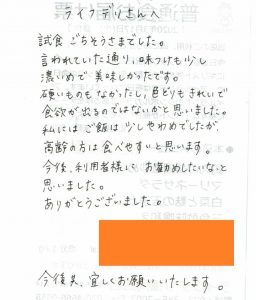 ライフデリさんへ
試食ごちそうさまでした。
言われていた通り、味つけも少し
濃いめで美味しかったです。
硬いものもなかったし、目どりもきれいで
食欲が出るのではないかと思いました。
私にはご飯は少しやわめでしたが、
高齢の方は食べやすいと思います。
今後、利用者様にお勧めしたいなと
思いました。
ありがとうございました。
今後共、宜しくお願いいたします。